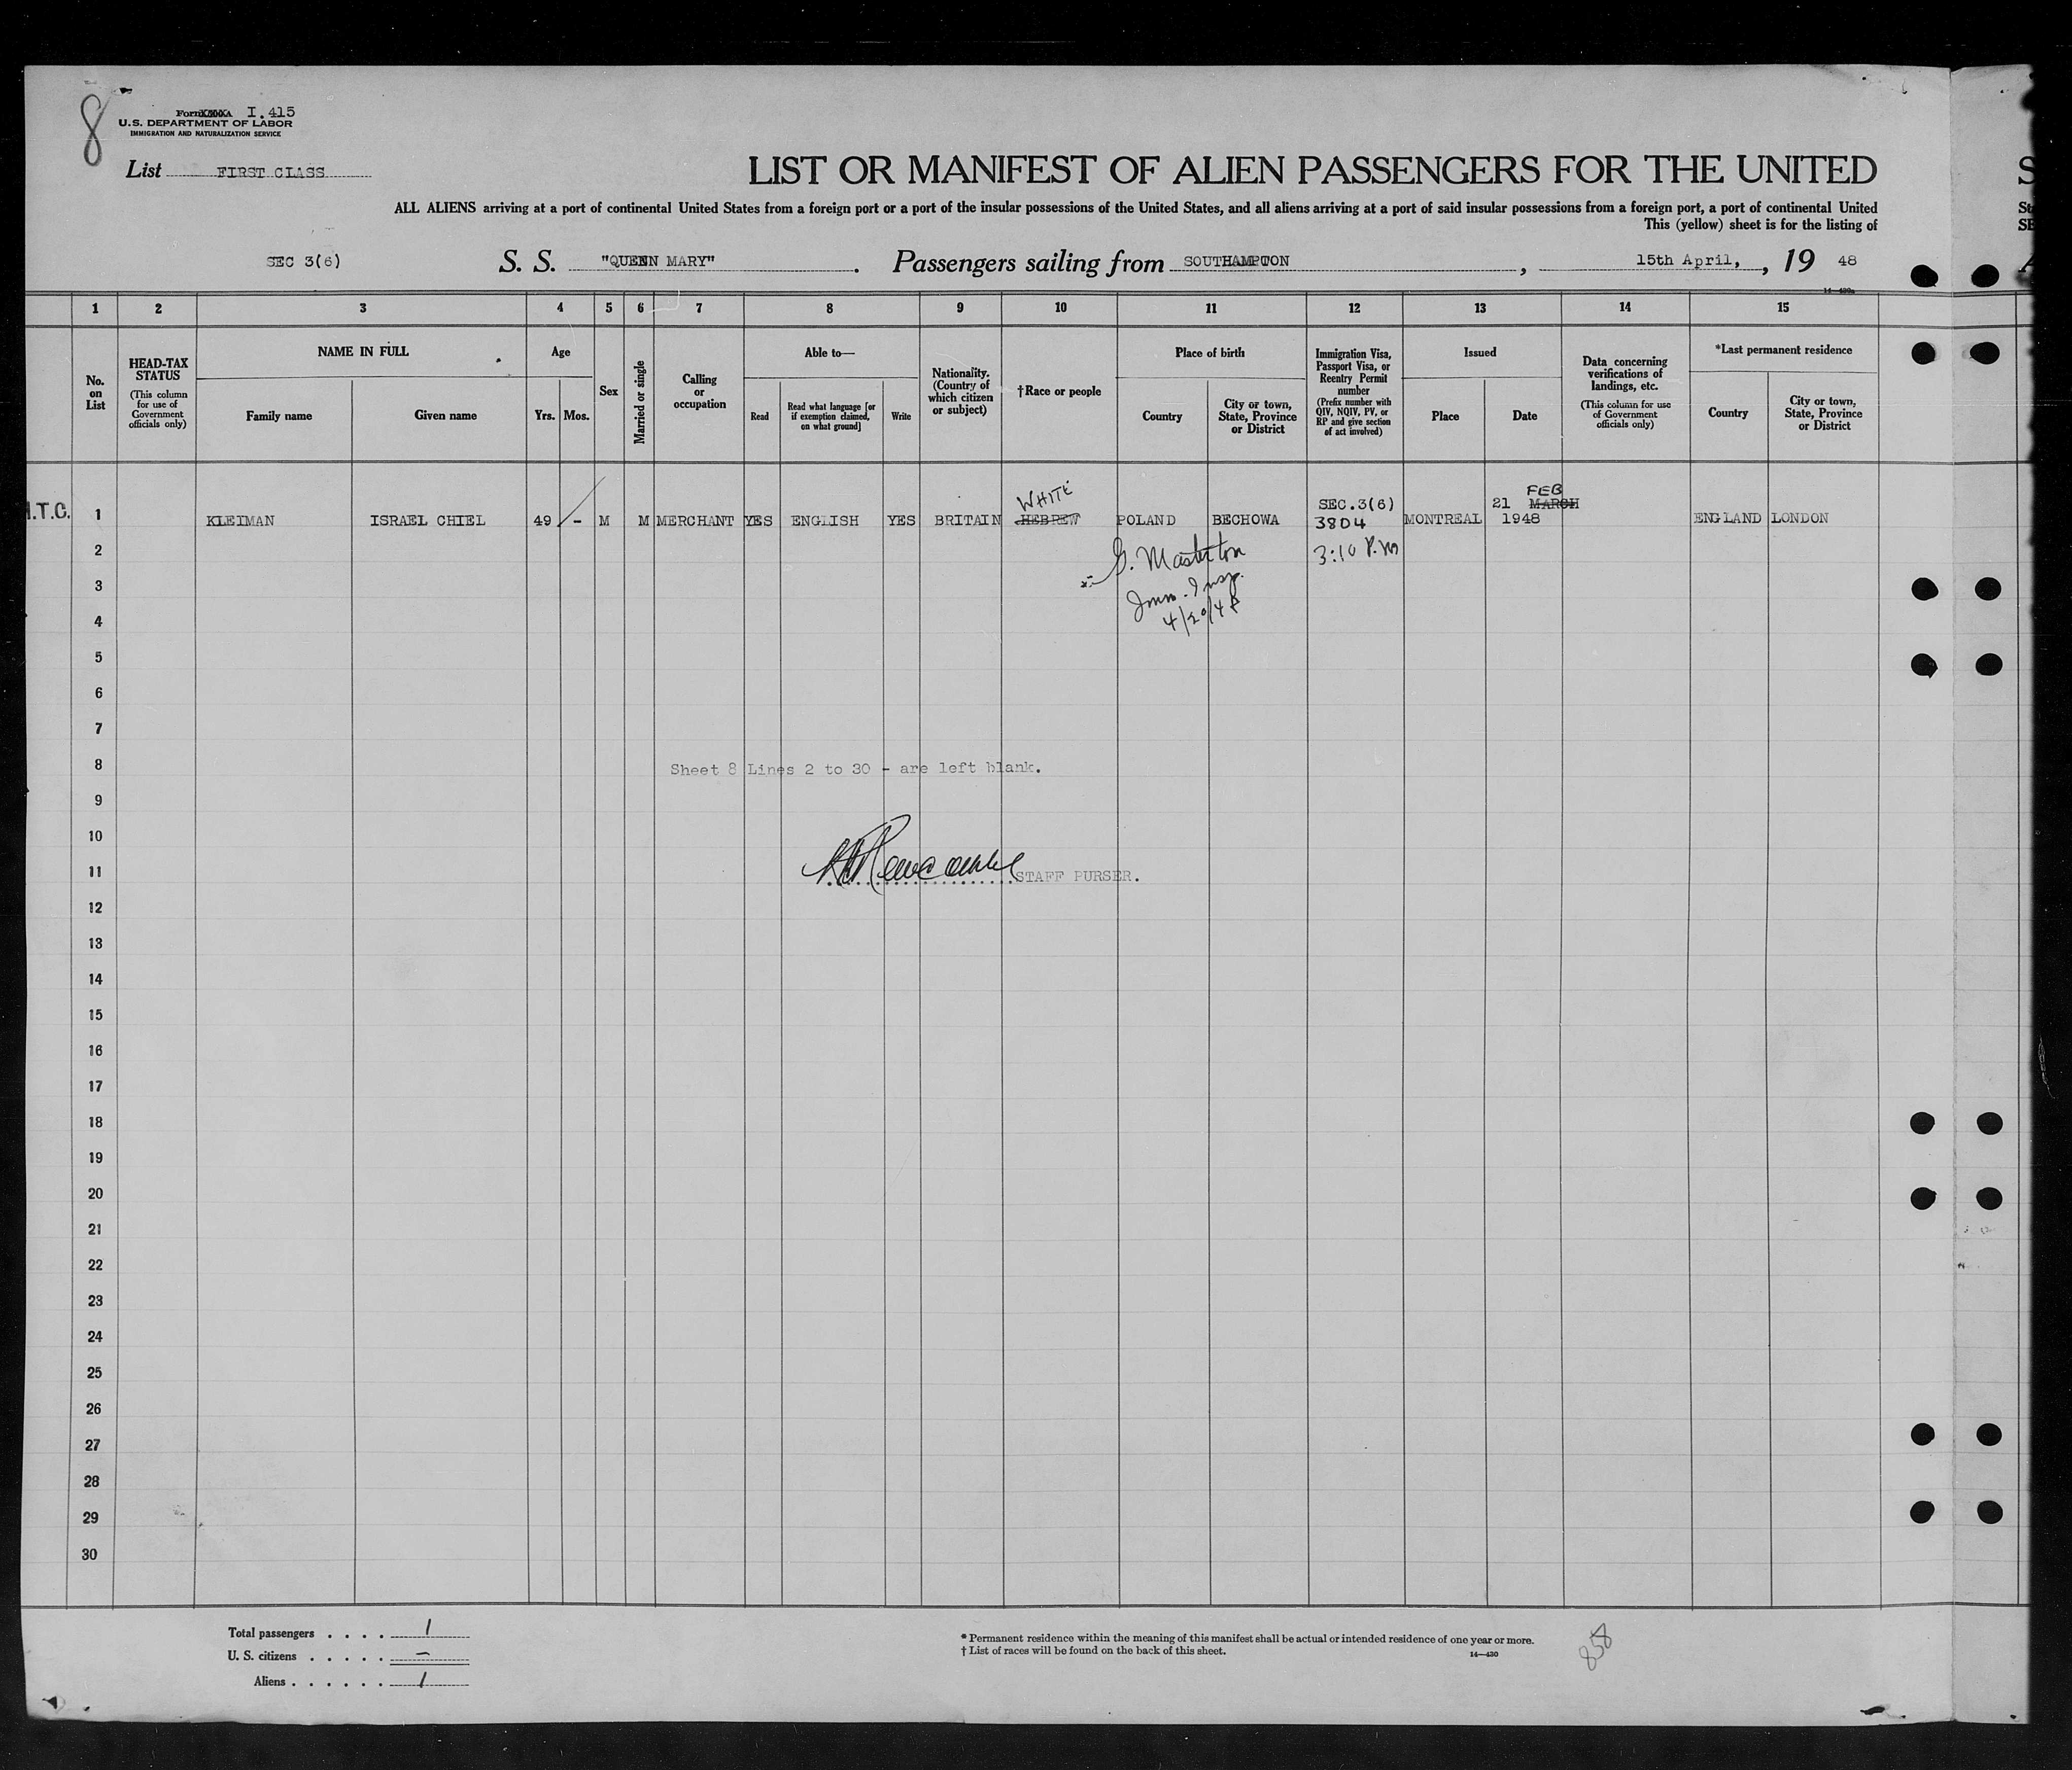 8
Form I.415
U.S. DEPARTMENT OF LABOR
IMMIGRATION AND NATURALIZATION SERVICE
List FIRST CLASS
LIST OR MANIFEST OF ALIEN PASSENGERS FOR THE UNITED
ALL ALIENS arriving at a port of continental United States from a foreign port or a port of the insular possessions of the United States, and all aliens arriving at a port of said insular possessions from a foreign port, a port of continental United
This (yellow) sheet is for the listing of
SEC 3(6) S. S. "QUEEN MARY". Passengers sailing from SOUTHAMPTON, 15th April, , 19 48
14-430
1 2 3 4 5 6 7 8 9 10 11 12 13 14 15
No. on List
HEAD-TAX STATUS (This column for use of Government officials only)
NAME IN FULL
Family name
Given name
Age
Yrs. Mos.
Sex
Married or single
Calling or occupation
Able to—
Read
Read what language [or if exemption claimed, on what ground]
Write
Nationality. (Country of which citizen or subject)
†Race or people
Place of birth
Country
City or town, State, Province or District
Immigration Visa, Passport Visa, or Reentry Permit number (Prefix number with QIV, NQIV, PV, or RP and give section of act involved)
Issued
Place
Date
Data concerning verifications of landings, etc. (This column for use of Government officials only)
*Last permanent residence
Country
City or town, State, Province or District
WHITE SEC.3(6) 21 FEB MARCH
.T.C. 1 KLEIMAN ISRAEL CHIEL 49 - M M MERCHANT YES ENGLISH YES BRITAIN HEBREW POLAND BECHOWA 3804 MONTREAL 1948 ENGLAND LONDON
2 G. Masterton 3:10 P.M
3 Imm. Insp.
4 4/20/48
5
6
7
8 Sheet 8 Lines 2 to 30 - are left blank.
9
10
11 STAFF PURSER.
12
13
14
15
16
17
18
19
20
21
22
23
24
25
26
27
28
29
30
Total passengers . . . . 1
U. S. citizens . . . . . -
Aliens . . . . . . 1
* Permanent residence within the meaning of this manifest shall be actual or intended residence of one year or more.
† List of races will be found on the back of this sheet.
14-430
858